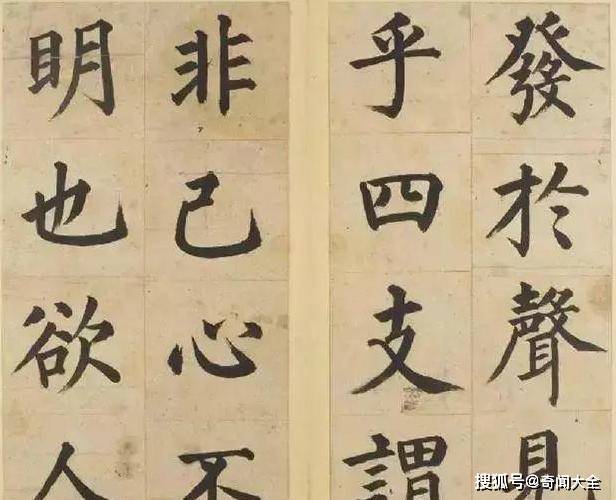 發於聲見
乎四支謂
非己心不
明也欲人
搜狐号@奇闻大全